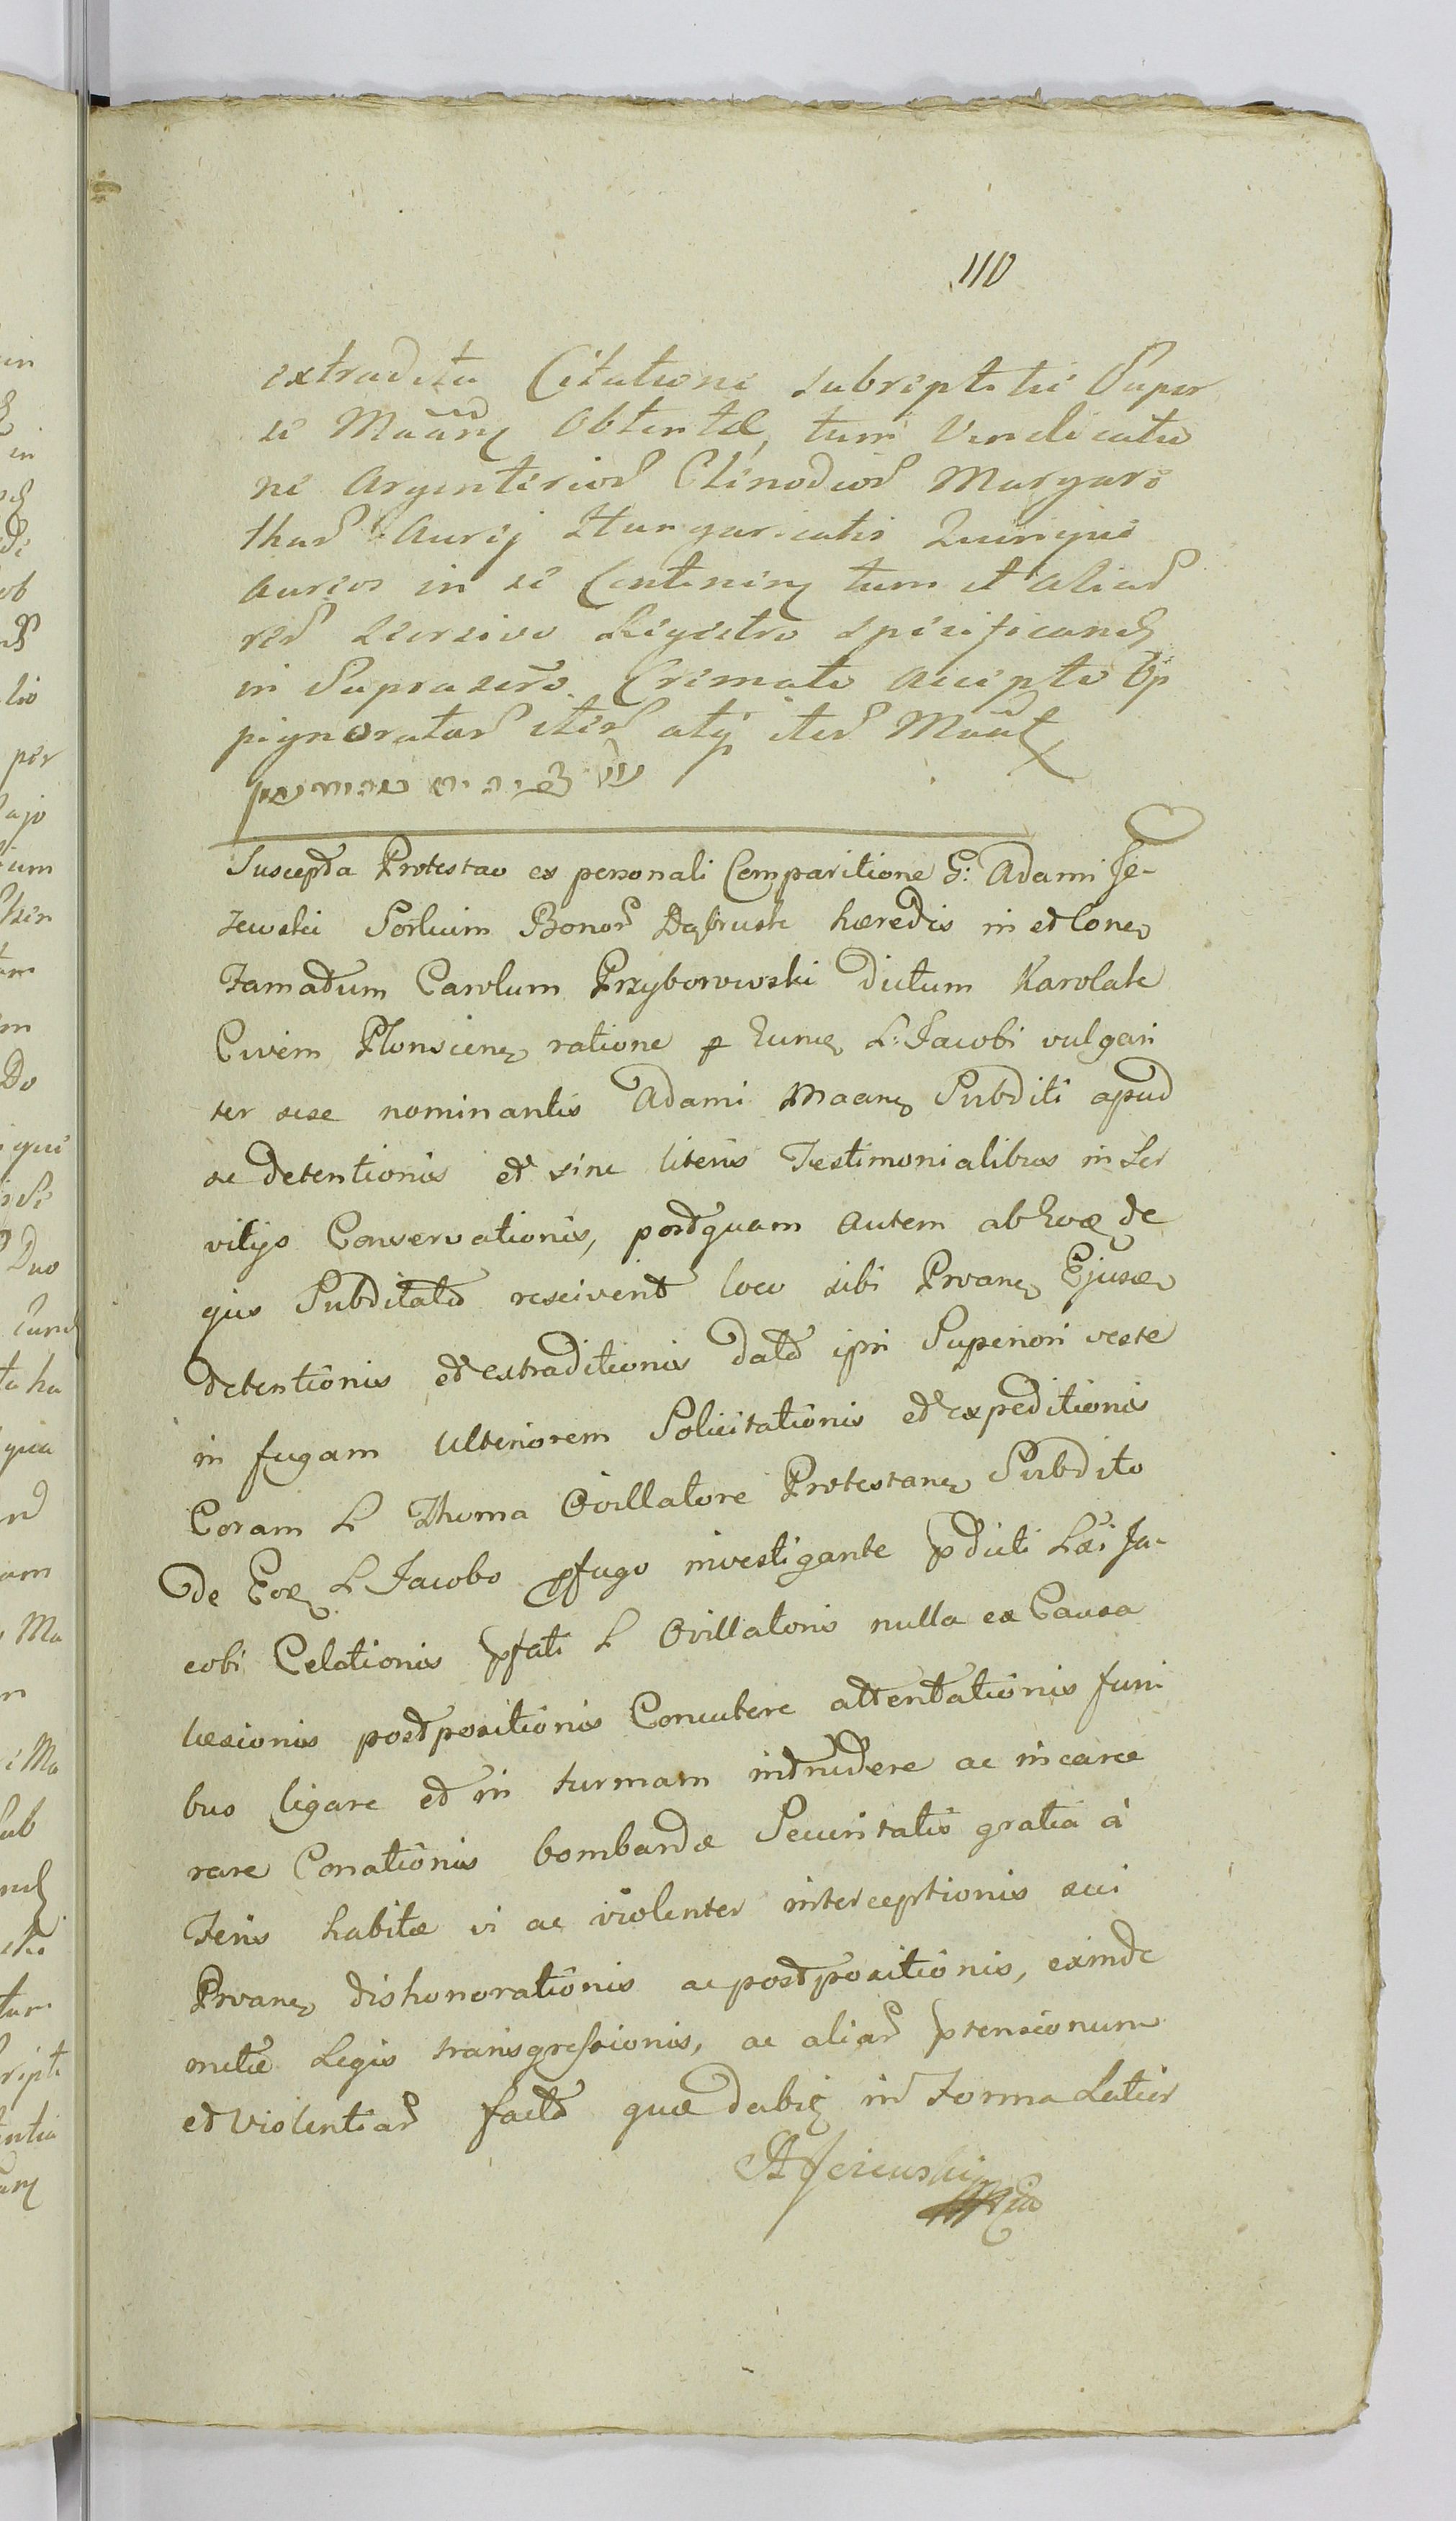 110
extradita Citatione subreptitie Super
se Maand obtentæ, tum Vendicatio
ne Argenterior Clinodior Margari
thar Aurej Hungaricalis Quinque
aureos in se Continen tum et aliar
rer seorsivo Regestro specificand
in Suprascro Cremate accepto op
pignoratar iter atq iter Maat
Suscepta Protestao ex personali Comparitione G: Adami Je-
zewski Sortium Bonor Dąbrusk hæredis in et Cone
Famatum Carolum Przyborowski dictum Karolak
Civem Plonscien ratione p hunc L: Jacobi vulgari
ter sese nominantis Adami Maan Subditi apud
se detentionis et sine literis Testimonialibus in Ser
vitys Conservationis, postquam autem ab hoc de
ejus Subditate resciverit loco sibi Proan Ejusd
detentionis et extraditionis date ipsi Superiori veste
in fugam ulteriorem Solicitationis et expeditionis
Coram L Thoma Ovillatore Protestan Subdito
de Eod L Jacobo pfugo investigante pdicti Lai Ja-
cobi Celationis pfati L Ovillatoris nulla ex Causa
læsionis postpositionis Concutere attentationis funi
bus ligare et in turmam intrudere ac incarce
rare Conationis bombardæ Securitatis gratia à
Feris habitæ vi ac violenter interceptionis sui
Proan dishonorationis ac postpositionis, exinde
metæ Legis transgressionis, ac aliar ptensionum
et violentiar facta quæ dabit in Forma Latior
A Jezewski
mpria